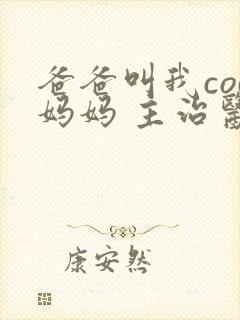 爸爸叫我co
妈妈 主治
康安然